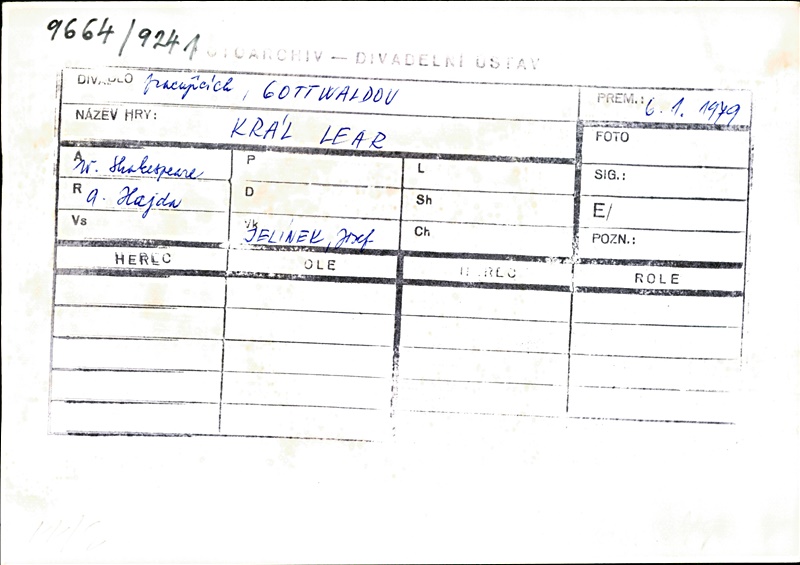 9664/9241
FOTOARCHIV — DIVADELNÍ ÚSTAV
DIVADLO pracujících, GOTTWALDOV
PREM.: 6. 1. 1979
NÁZEV HRY: KRÁL LEAR
FOTO
A W. Shakespeare
P
L
SIG.:
R A. Hajda
D
Sh
E/
Vs
Vk JELÍNEK, Josef
Ch
POZN.:
HEREC ROLE HEREC ROLE